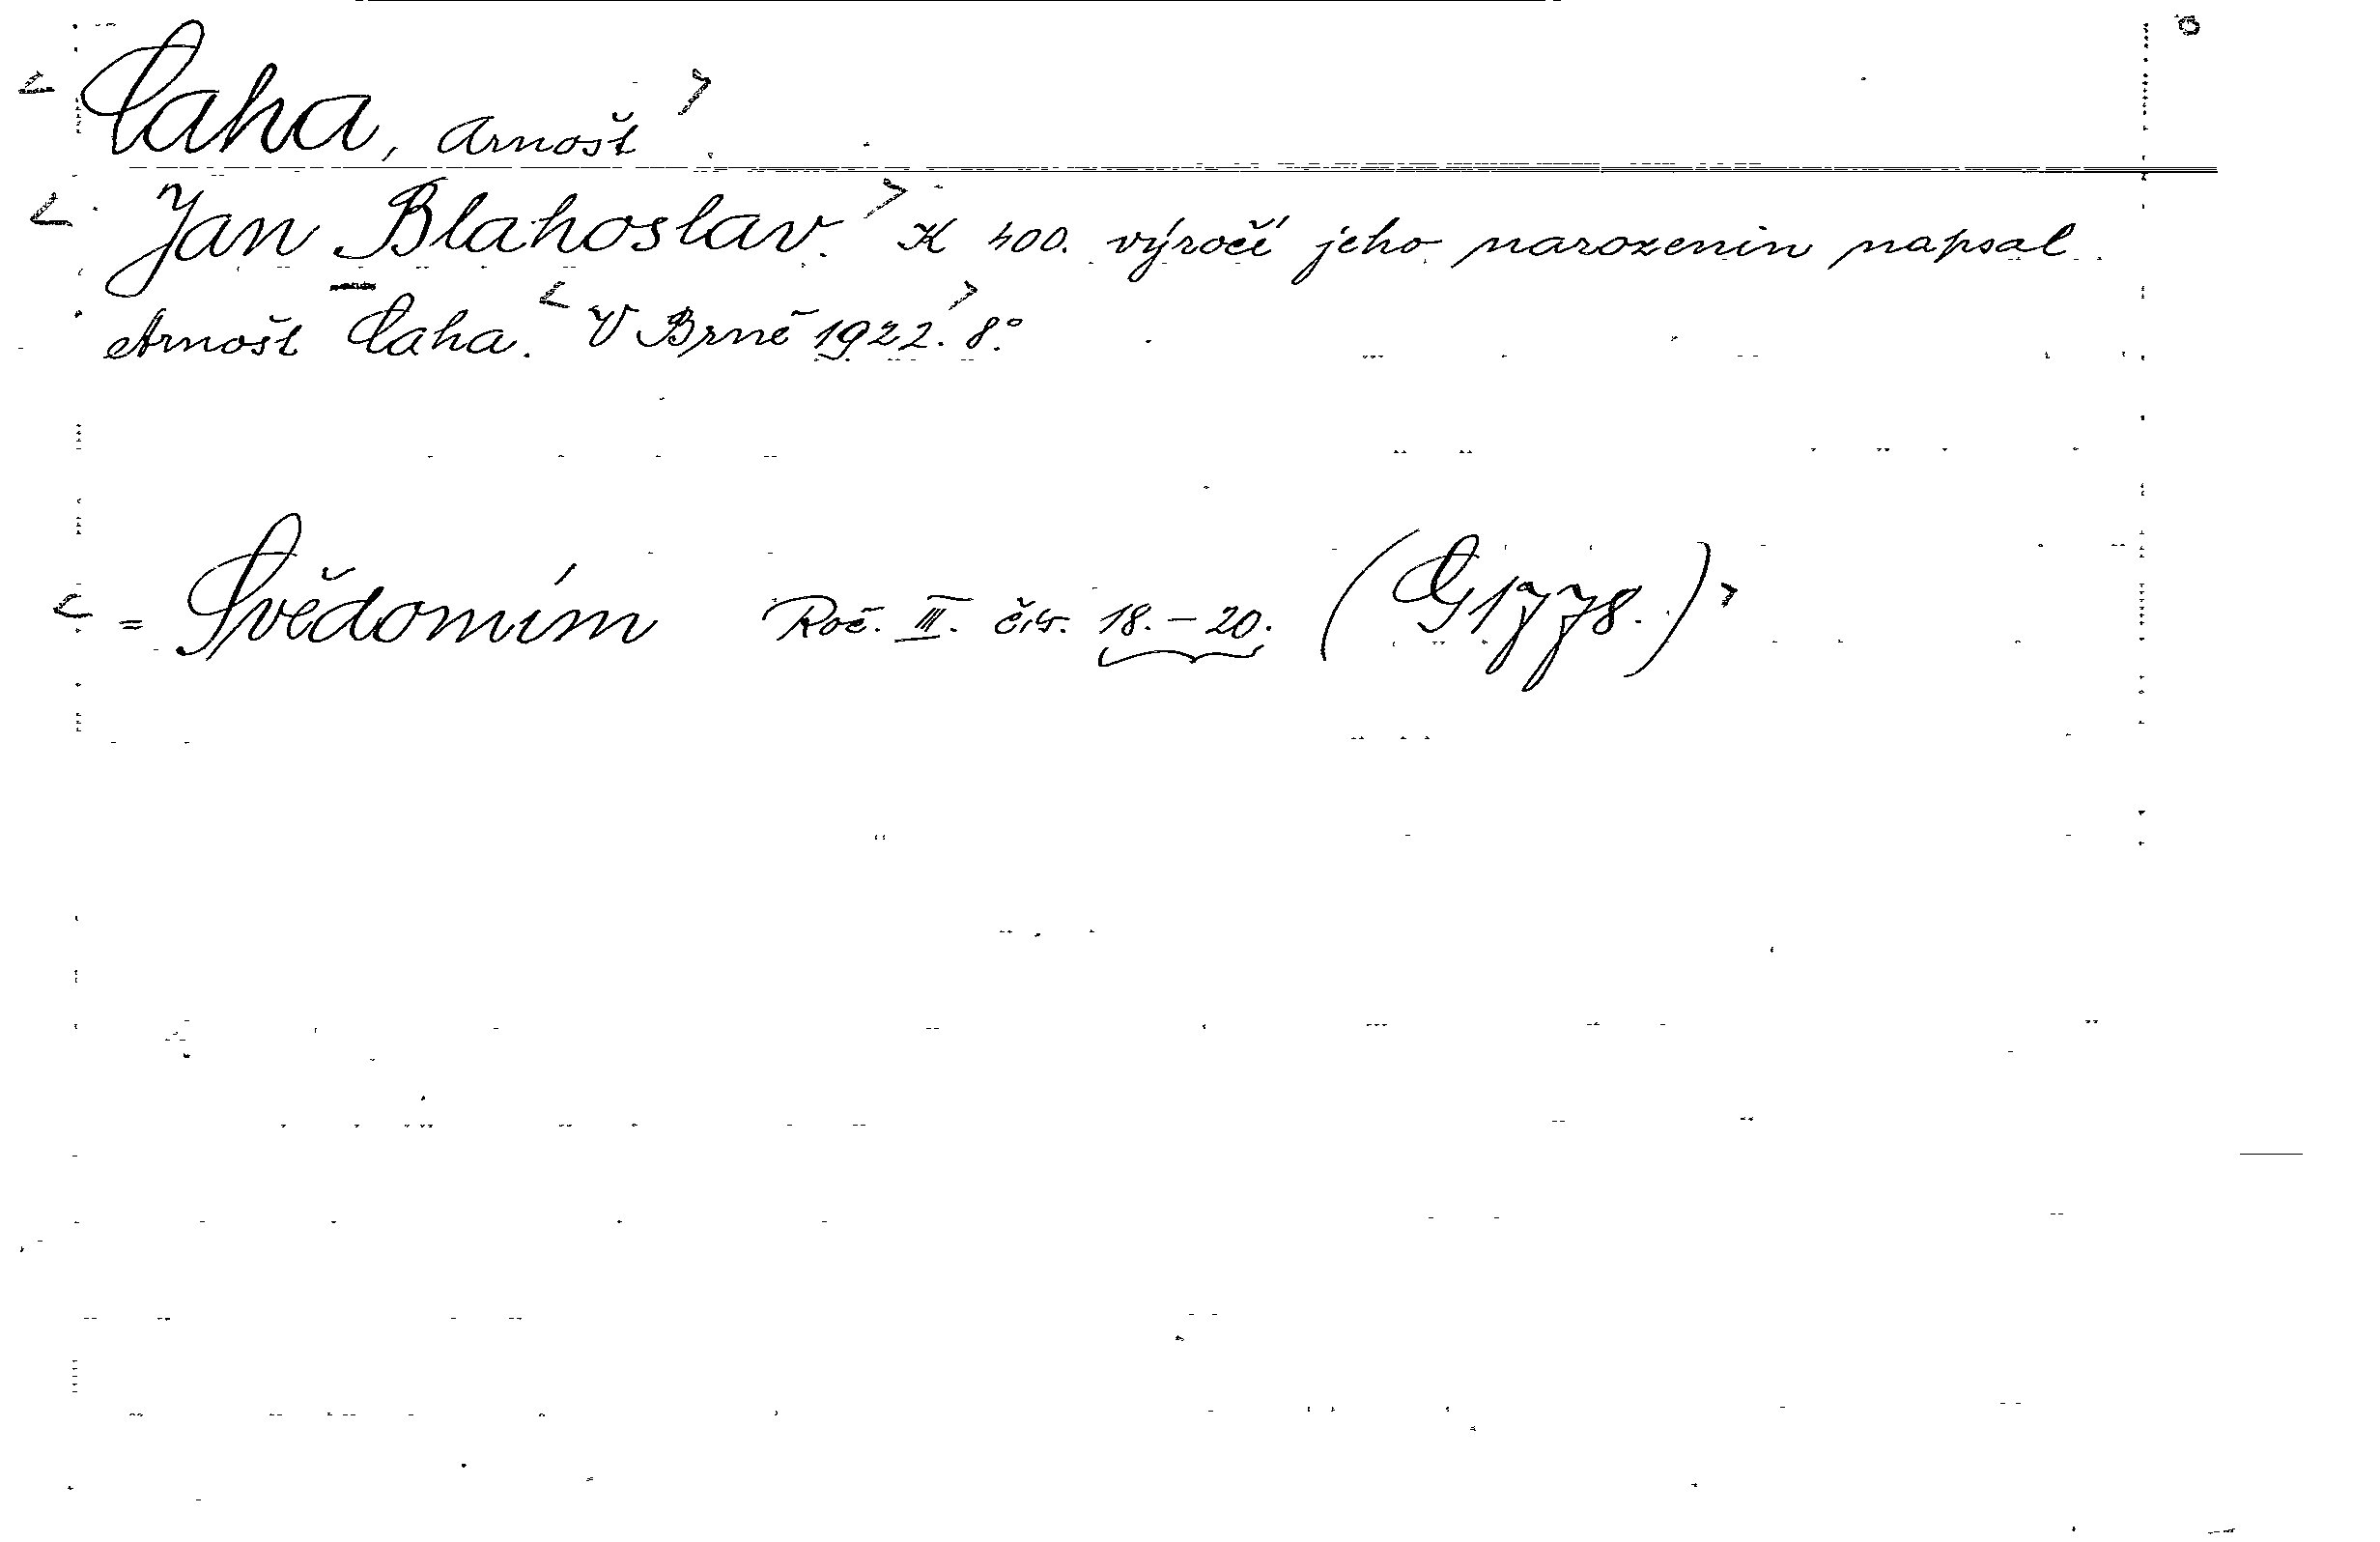 < Caha, Arnošt >
< Jan Blahoslav. > K 400. výročí jeho narozenin napsal
Arnošt Caha. < V Brně 1922. > 8.°
< = Svědomím Roč. III. čís. 18. – 20. (G 1778.) >